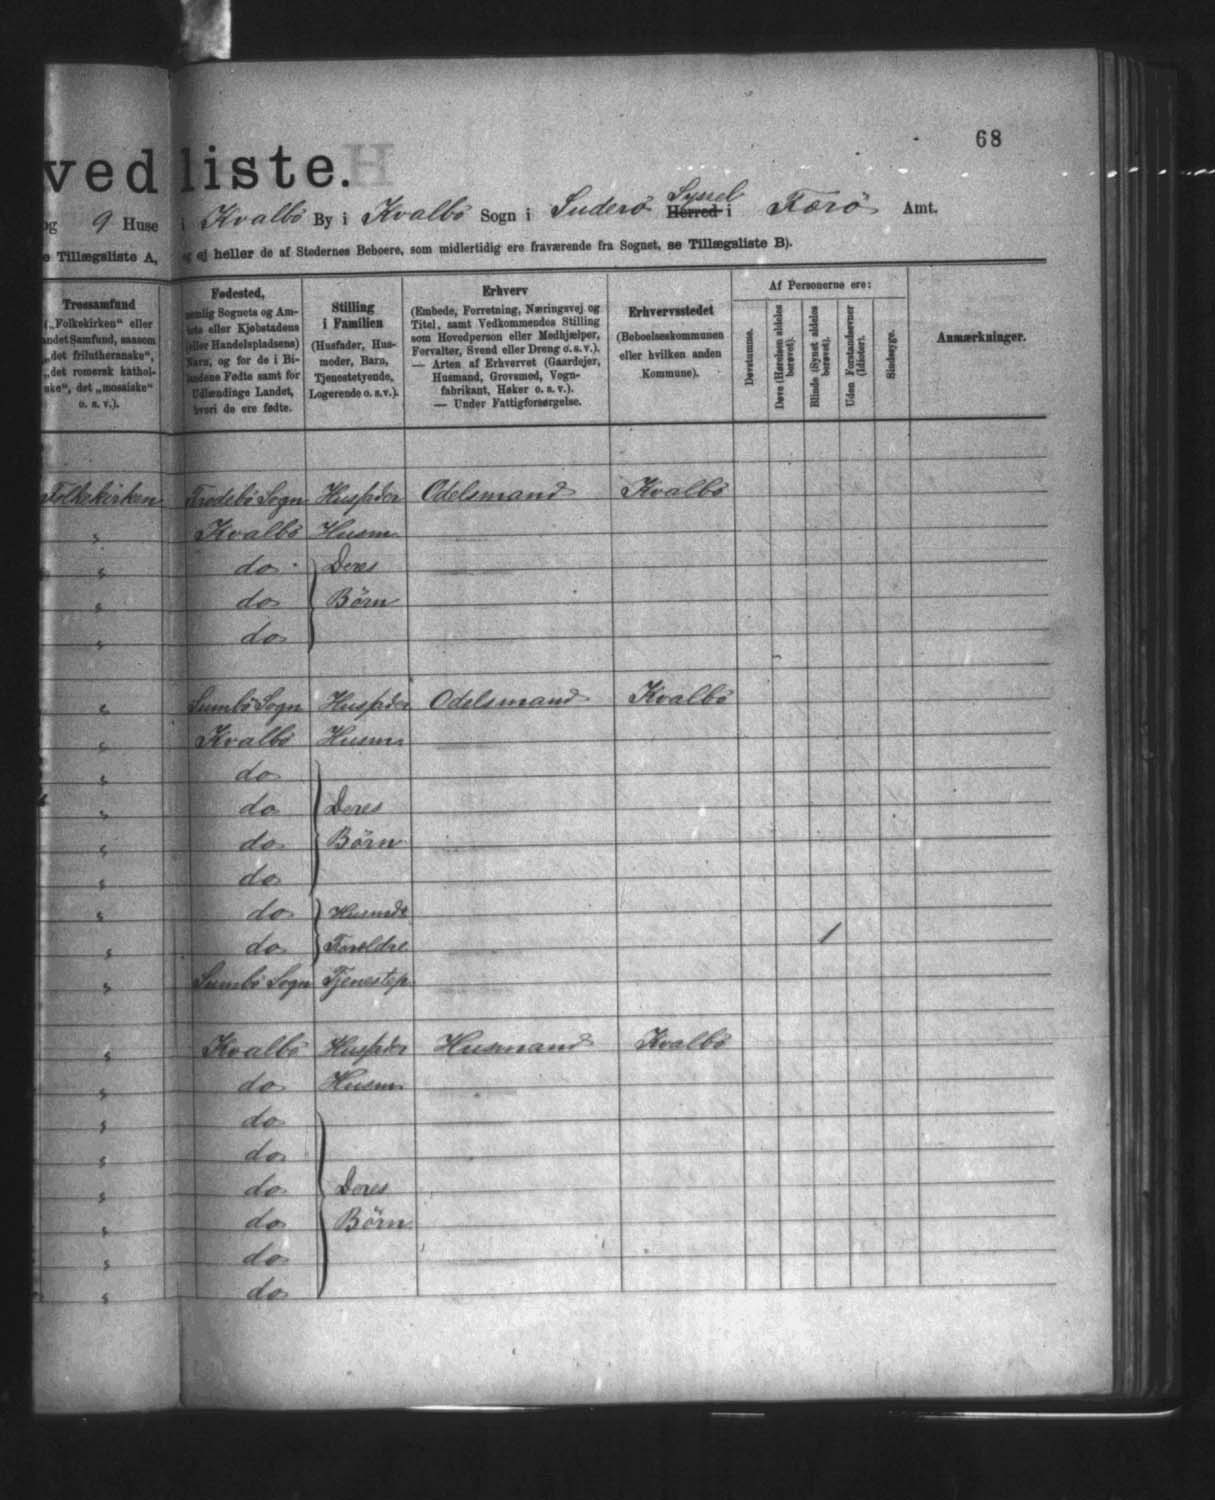 68
vedliste.
og 9 Huse i Kvalbö By i Kvalbö Sogn i Suderö Syssel Herred i Færö Amt.
e Tillægsliste A, og ej heller de af Stedernes Beboere, som midlertidig ere fraværende fra Sognet, se Tillægsliste B).
Trossamfund
(„Folkekirken“ eller
andet Samfund, saasom
„det frilutheranske“,
„det romersk kathol-
ske“, det „mosaiske“
o. s. v.).
Fødested,
nemlig Sognets og Am-
tets eller Kjøbstadens
(eller Handelspladsens)
Navn, og for de i Bi-
landene Fødte samt for
Udlændinge Landet,
hvori de ere fødte.
Stilling
i Familien
(Husfader, Hus-
moder, Barn,
Tjenestetyende,
Logerende o. s. v.).
Erhverv
(Embede, Forretning, Næringsvej og
Titel, samt Vedkommendes Stilling
som Hovedperson eller Medhjælper,
Forvalter, Svend eller Dreng o. s. v.).
— Arten af Erhvervet (Gaardejer,
Husmand, Grovsmed, Vogn-
fabrikant, Høker o. s. v.).
— Under Fattigforsørgelse.
Erhvervsstedet
(Beboelseskommunen
eller hvilken anden
Kommune).
Af Personerne ere:
Døvstumme.
Døve (Hørelsen aldeles
berøvet).
Blinde (Synet aldeles
berøvet).
Uden Forstandsevner
(Idioter).
Sindssyge.
Anmærkninger.
Folkekirken Trodebö Sogn Husfader Odelsmand Kvalbö
" Kvalbö Husm.
" do Deres
" do Börn
" do
" Sumbö Sogn Husfader Odelsmand Kvalbö
" Kvalbö Husm.
" do
" do Deres
" do Börn
" do
" do Husmds
" do Forældre 1
" Sumbö Sogn Tjenestep.
" Kvalbö Husfader Husmand Kvalbö
" do Husm.
" do
" do
" do Deres
" do Börn
" do
" do